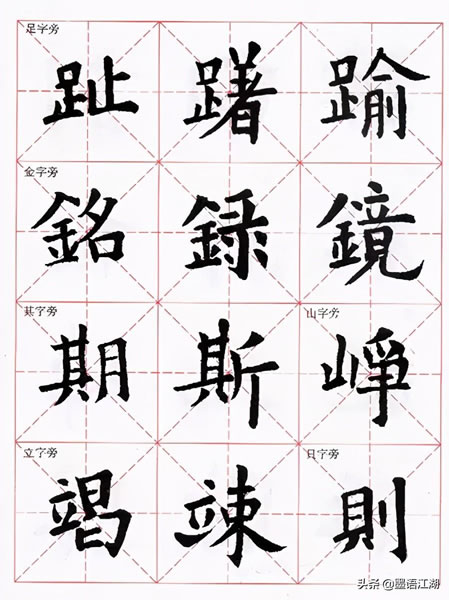 足字旁
趾 躇 踰
金字旁
銘 録 鏡
其字旁 山字旁
期 斯 崢
立字旁 日字旁
竭 竦 則
头条 @墨语江湖